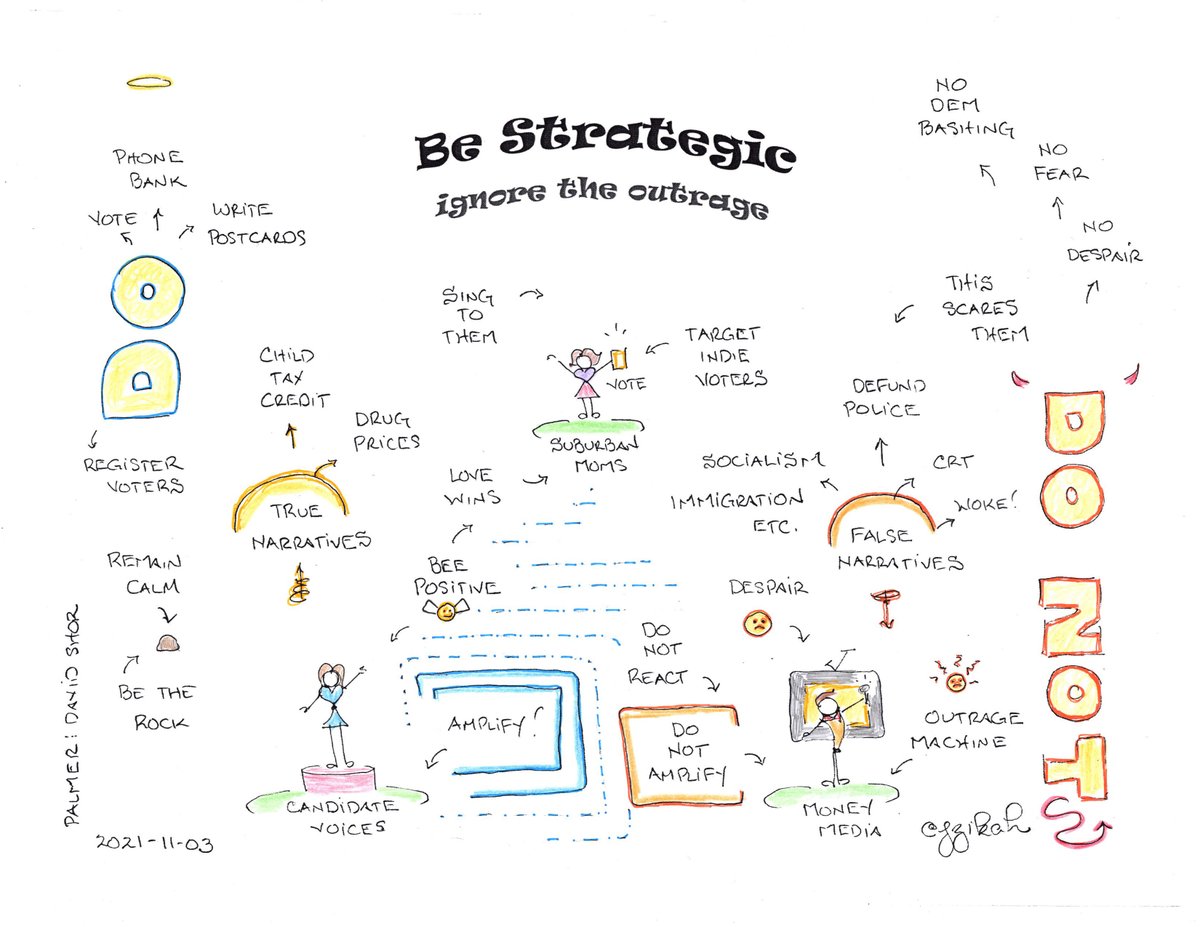 Be Strategic
ignore the outrage
PHONE
BANK
VOTE
WRITE
POSTCARDS
DO
REGISTER
VOTERS
CHILD
TAX
CREDIT
DRUG
PRICES
TRUE
NARRATIVES
REMAIN
CALM
BE THE
ROCK
PALMER: DAVID SHOR
2021-11-03
SING
TO
THEM
TARGET
INDIE
VOTERS
VOTE
SUBURBAN
MOMS
LOVE
WINS
BEE
POSITIVE
AMPLIFY!
CANDIDATE
VOICES
NO
DEM
BASHING
NO
FEAR
NO
DESPAIR
THIS
SCARES
THEM
DEFUND
POLICE
SOCIALISM
CRT
IMMIGRATION
ETC.
WOKE!
FALSE
NARRATIVES
DESPAIR
DO
NOT
REACT
DO
NOT
AMPLIFY
OUTRAGE
MACHINE
MONEY
MEDIA
DO NOT